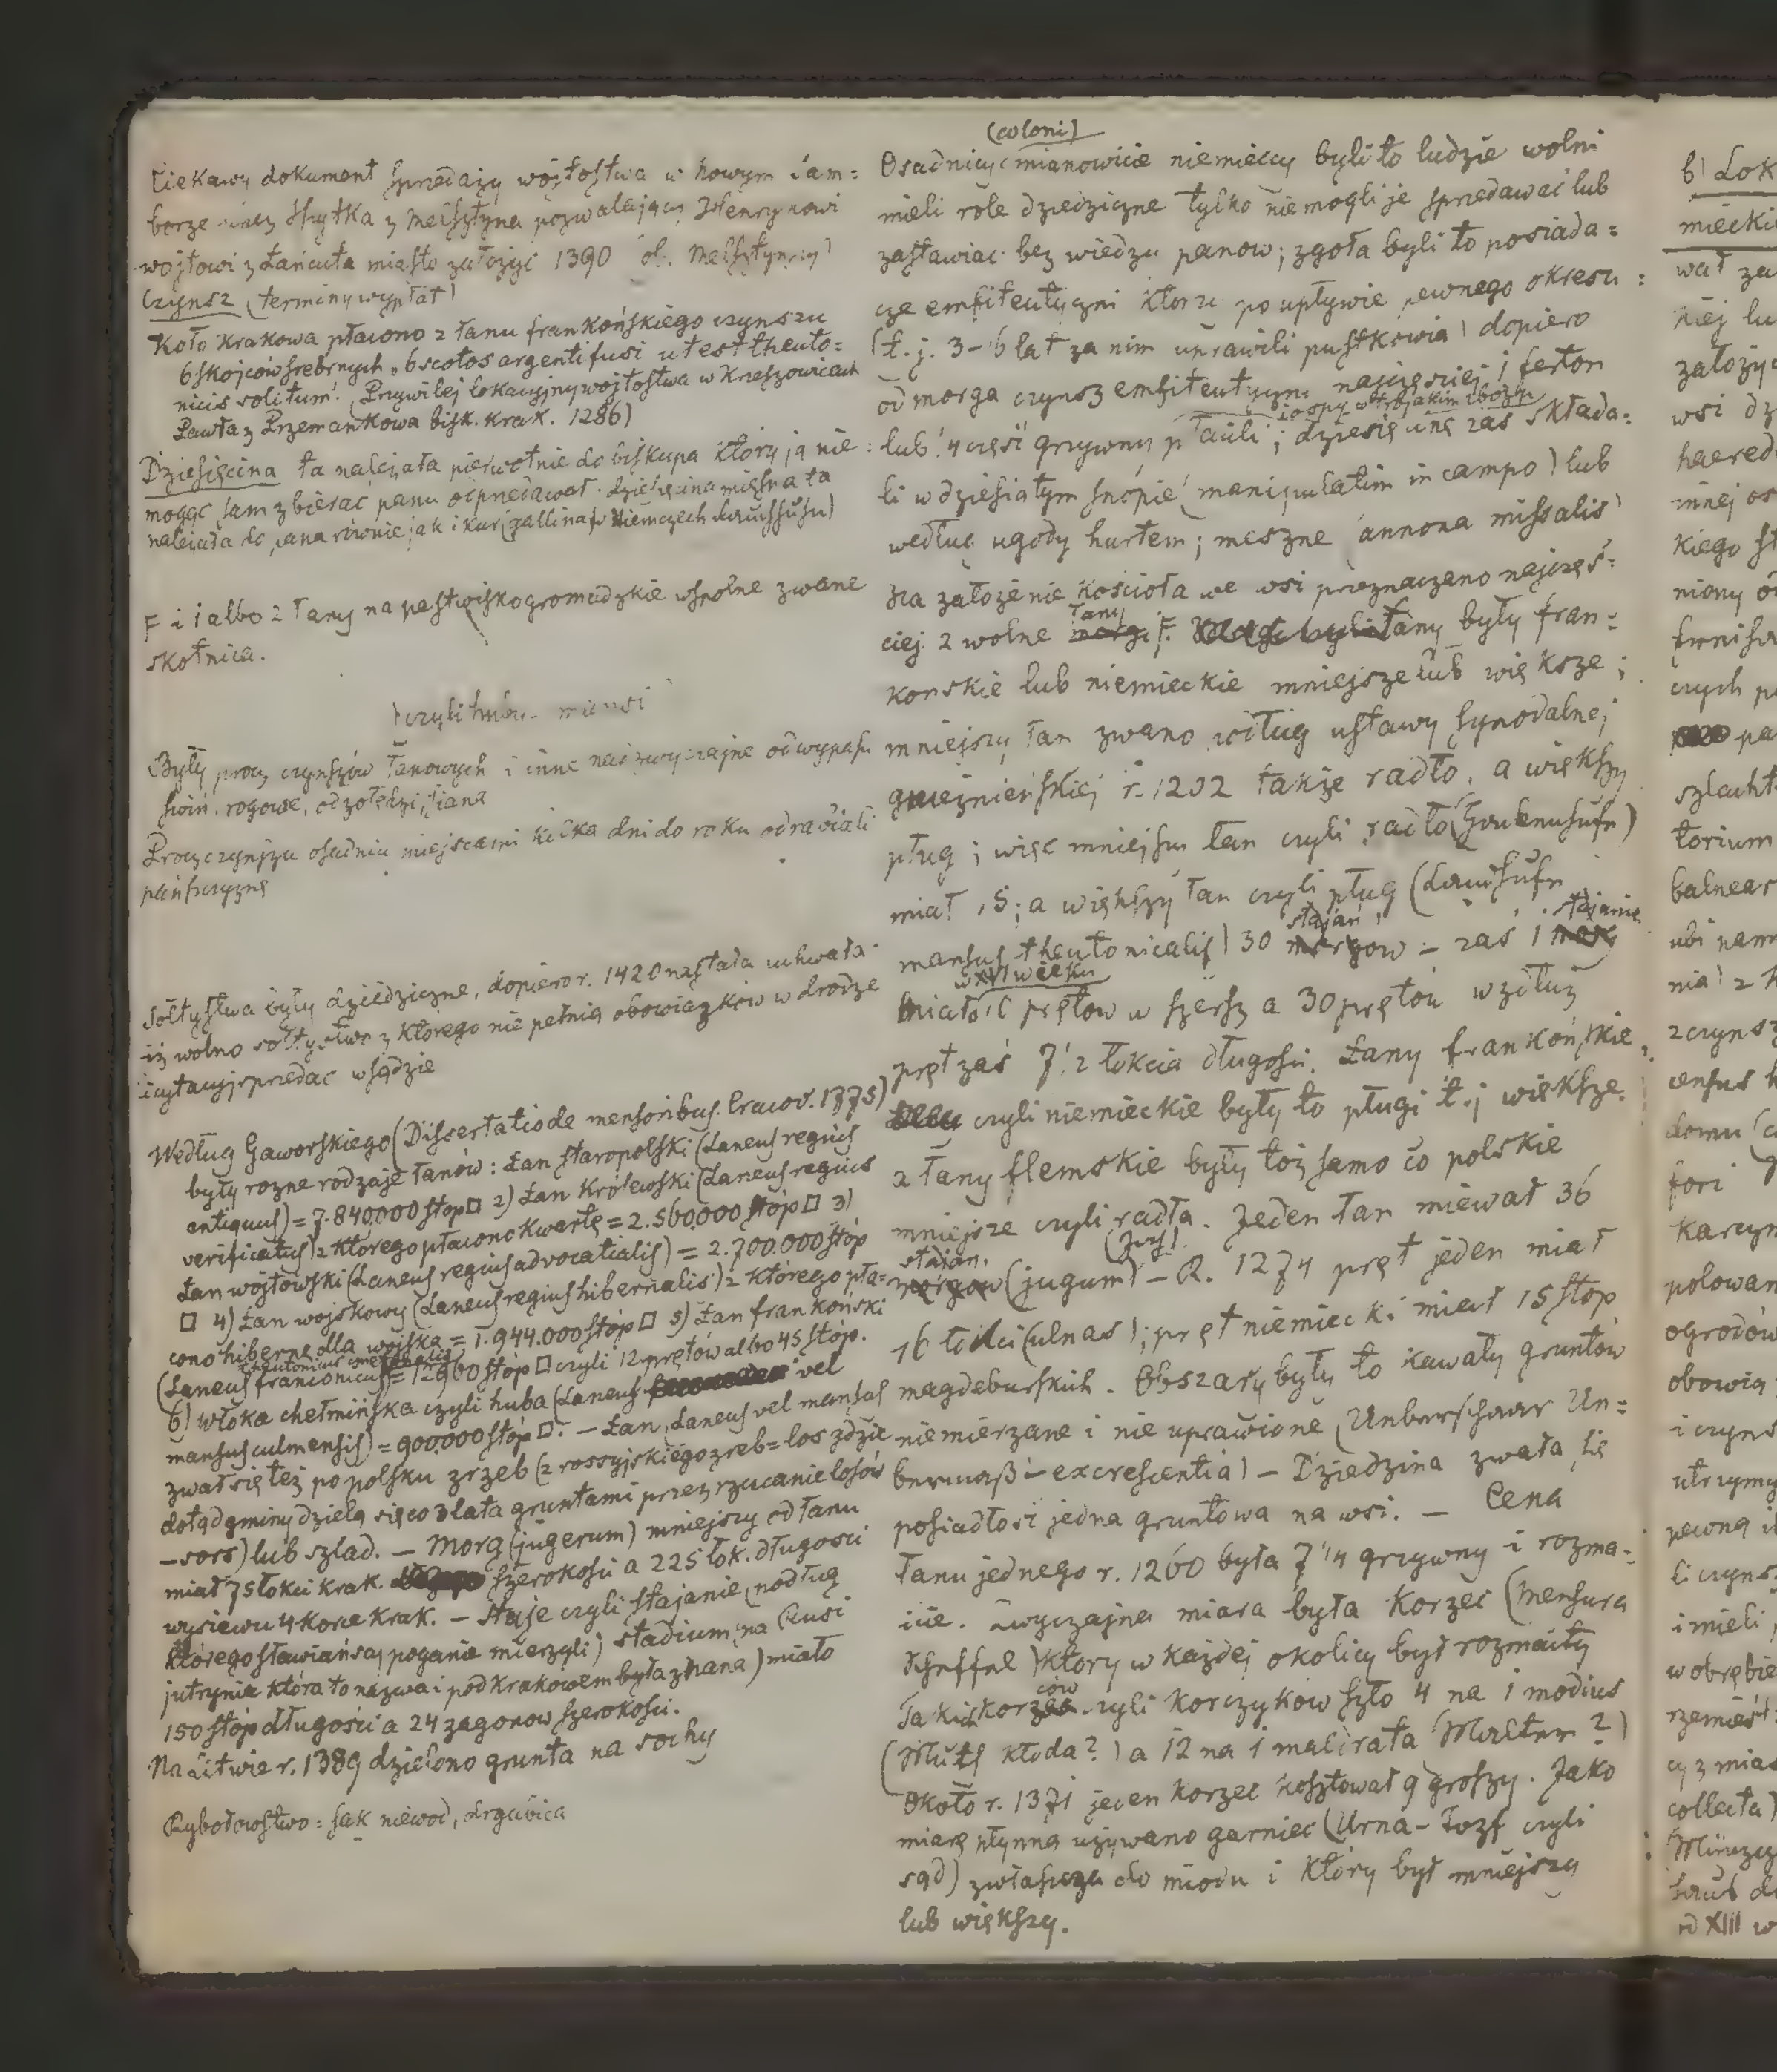 Ciekawy dokument sprzedaży wójtostwa w Nowym Sam=
borze przez Spytka z Melsztyna pozwalający Henrykowi
wójtowi z Łańcuta miasto założyć 1390
Czynsz (terminy wypłat)
Koło Krakowa płacono z łanu frankońskiego czynszu
6 skojców srebrnych „6 scotos argenti fusi ut est theuto=
nicis solitum! (Przywilej lokacyjny wójtostwa w Krzeszowicach
Pawła z Przemankowa bisk. krak. 1286)
Dziesięcina ta należała pierwotnie do biskupa który ją nie
mogąc sam zbierać panu odprzedawał. dziesięcina mięsna ta
należała do pana równie jak i kur (gallina) w Niemczech
F i 1 albo 2 łany na pastwisko gromadzkie wspólne zwane
skotnica.
czyli huby - mansi
Były prócz czynszów łanowych i inne nadzwyczajne od wypasu
świń, rogowe, od żołędzi, siana
Prócz czynszu osadnicy miejscami kilka dni do roku odrabiali
pańszczyznę
Sołtystwa były dziedziczne, dopiero r. 1420 nastała uchwała
iż wolno sołtystwo z którego nie pełnią obowiązków w drodze
licytacyj sprzedać w sądzie
Według Gaworskiego (Dissertatio de mensoribus. Cracov. 1775)
były rozne rodzaje łanów: Łan staropolski (Laneus regius
antiquus) = 7.840.000 stop □ 2) Łan Królewski (Laneus regius
verificatus) z którego płacono kwartę = 2.560.000 stóp □ 3)
Łan wojtowski (Laneus regius advocatialis) = 2.700.000 stóp
□ 4) Łan wojskowy (Laneus regius hibernalis) z którego pła=
cono hibernę dla wojska = 1.944.000 stóp □ 5) Łan frankoński
(Laneus franconicus) = 12960 stóp □ czyli 12 prętów albo 45 stóp.
6) Włoka chełmińska czyli huba (Laneus vel
mansus culmensis) = 900.000 stóp □. — Łan, Laneus vel mansus
zwał się też po polsku zrzeb (z rossyjskiego zreb = los gdzie
dotąd gminy dzielą się co 3 lata gruntami przez rzucanie losów
– sors) lub szlad. — Morg (jugerum) mniejszy od łanu
miał 75 łokci krak. szerokości a 225 łok. długości
wysiewu 4 korce krak. — Staje czyli stajanie, podług
którego sławiańscy poganie mierzyli) stadium, na Rusi
jutrynia która to nazwa i pod Krakowem była znana) miało
150 stóp długości a 24 zagonow szerokości.
Na Litwie r. 1389 dzielono grunta na sochy
Rybołowstwo: sak niewod, drgubica
(coloni)
Osadnicy mianowicie niemieccy byli to ludzie wolni
mieli role dziedziczne tylko nie mogli je sprzedawać lub
zastawiac bez wiedzy panow; zgoła byli to posiada=
cze emfiteutyczni ktorzy po upływie pewnego okresu
(t.j. 3–6 lat za nim uprawili pustkowia) dopiero
od morga czynsz emfiteutyczny najczęściej 1 ferton
i ospy w trojakim zbożu
lub ¼ część grzywny płacili; dziesięcinę zaś składa=
li w dziesiątym snopie (manipulatim in campo) lub
według ugody hurtem; meszne (annona missalis)
Na założenie kościoła we wsi przeznaczano najczęś=
łany
ciej 2 wolne morgi F. łany były fran=
konskie lub niemieckie mniejsze lub większe;
mniejszy łan zwano według ustawy synodalnej
gnieźnieńskiej r. 1202 także radło, a większy
pług; więc mniejszy łan czyli radło
miał 15; a większy łan czyli pług
stajań stajanie
mansus theutonicalis) 30 morgow – zaś 1
w XVI wieku
miało prętow w szersz a 30 prętów wzdłuż
pręt zaś 7½ łokcia długości. Łany frankońskie
czyli niemieckie były to pługi t.j większe.
a łany flemskie były toż samo co polskie
mniejsze czyli radła. Jeden łan miewał 36
stajań
morgow (jugum) – R. 1274 pręt jeden miał
16 łokci (ulnas); pręt niemiecki miał 15 stop
magdeburskich. Obszary były to kawały gruntów
niemierzane i nie uprawione, Unbarschaar Un=
bermaß – excrescentia) – Dziedzina zwała się
posiadłość jedna gruntowa na wsi. — Cena
łanu jednego r. 1260 była 7¼ grzywny i rozma=
icie. Zwyczajna miara była korzec (mensura
Scheffel) który w każdej okolicy był rozmaity
ców
Takich korzec czyli korczykow szło 4 na 1 modius
(Mütz kłoda?) a 12 na 1 maldrata (Malter?)
Około r. 1371 jeden korzec kosztował 9 groszy. Jako
miarę płynną używano garniec (Urna – Topf czyli
sąd) zwłaszcza do miodu i który był mniejszy
lub większy.
b) Lok
miecki
wał za
niej lu
założyc
wsi dz
haered
innej os
kiego st
niony
czych p
pa
szlacht
torium
balnear
ubi nam
nia) 2
z czynsz
census h
domu
fori
karczm
polowan
ogrodów
obowią
i czyns
utrzymy
pewną
li czyns
i mieli
w obrębie
rzemieśl
cy z mias
collecta)
od XIII w